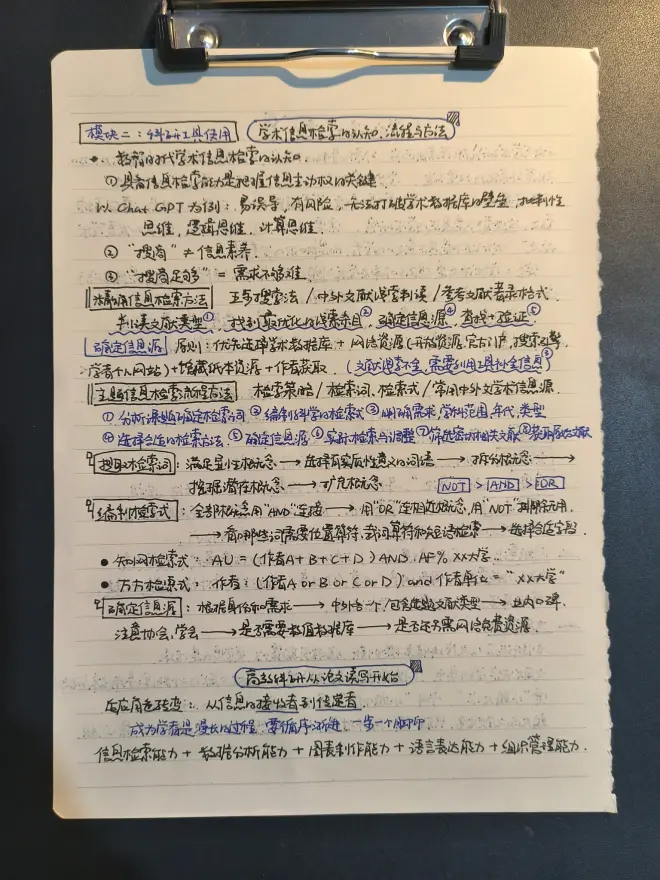 模块二：科研工具使用 学术信息检索的认知、流程与方法
数智时代学术信息检索的认知
① 具备信息检索能力是把握信息主动权的关键
以 Chat GPT 为例：易误导，有风险，无法打破学术数据库的壁垒，批判性
思维，逻辑思维，计算思维．
② “搜商” ≠ 信息素养．
③ “搜商足够” = 需求不够难．
精确信息检索方法 主导搜索法 / 中外文献线索判读 / 参考文献著录格式
判读文献类型① 找到最优化的线索条目② 确定信息源④ 查找+验证⑤
确定信息源 原则：优先选择学术数据库 + 网络资源（开放资源，官方门户，搜索引擎
学者个人网站）+馆藏纸本资源 + 作者获取 （文献线索不全，需要利用工具补全信息③）
主题信息检索流程方法 检索策略 / 检索词、检索式 / 常用中外文学术信息源．
① 分析课题确定检索词 ② 编制科学的检索式 ③ 明确需求，学科范围，年代，类型
④ 选择合适的检索方法 ⑤ 确定信息源 ⑥ 实时检索与调整 ⑦ 筛选密切相关文献 ⑧ 获取原始文献
提取检索词：满足显性概念 → 选择有实质性意义的词语 → 拆分概念 →
挖掘潜在概念 → 扩充概念 NOT > AND > OR
编制检索式：全部概念用“AND”连接 → 用“OR”连相近概念，用“NOT”删除无用．
→ 看哪些词需要位置算符，截词算符和短语检索 → 选择合适字段
• 知网检索式：AU =（作者A + B + C + D）AND AF% XX大学．
• 万方检索式：作者：(作者A or B or C or D) and 作者单位 = “XX大学”
确定信息源：根据身份和需求 → 中外各一个，包含绝大多数文献类型 → 业内口碑．
注意协会，学会 → 是否需要数值数据库 → 是否还需网络免费资源．
高效科研从论文读写开始
角色转变：从信息的接收者到传递者
成为学者是漫长的过程，要循序渐进，一步一个脚印
信息检索能力 + 数据分析能力 + 图表制作能力 + 语言表达能力 + 组织管理能力．